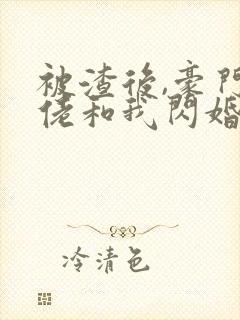 被渣後,豪門
佬和我閃婚
冷清色